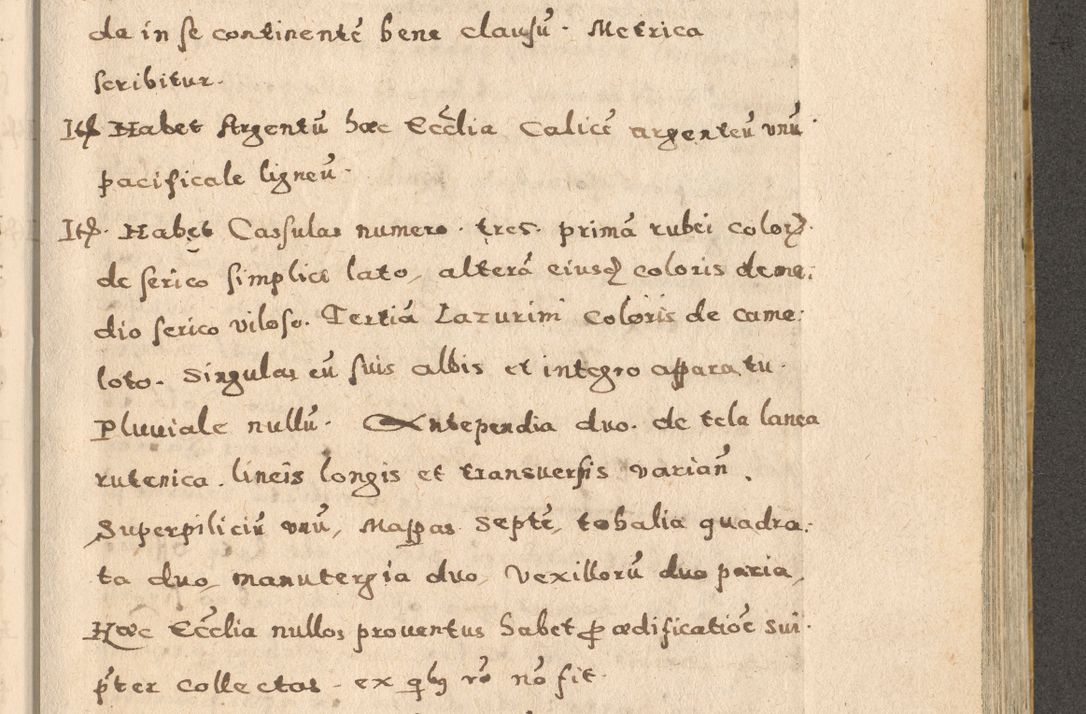 da in se continentē bene clausū. Metrica
scribitur.
Itē Habet Argentū hæc Eccłia Calicē argenteū vnū
pacificale ligneū.
Itē. Habet Cassulas numero. tres. primā rubei coloris.
de serico simplici lato, alterā eiusq coloris de me:
dio serico viloso. Tertiā Lazurini coloris de came:
loto. Singulas cū suis albis et integro apparatu.
Pluuiale nullū. Antependia duo. de tela lanea
rutenica. lineis longis et transuersis varian̄.
Superpiliciū vnū, Mappas Septē, tobalia quadra:
ta duo, manutergia duo, Vexillorū duo paria,
Hæc Eccłia nullos prouentus habet p ædificatiōe sui.
p̄ter collectas - ex qbꝫ rō nō fit.